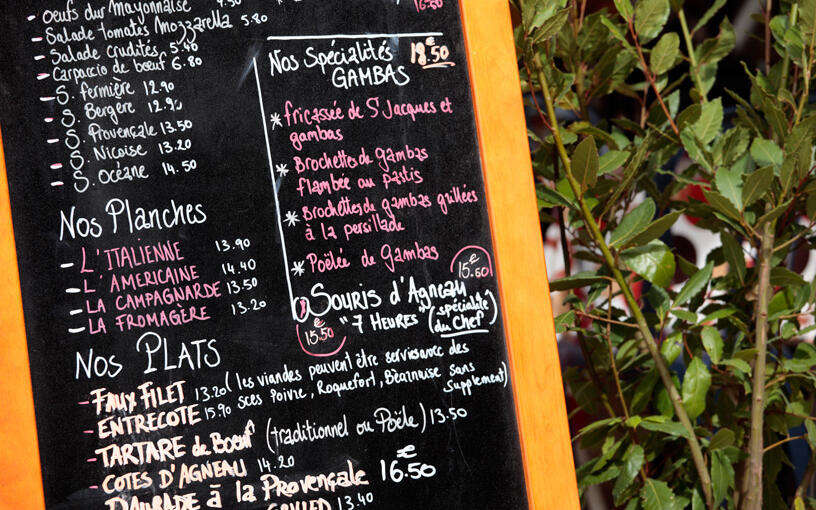 - Oeufs dur Mayonnaise
- Salade tomates Mozzarella 5.80
- Salade crudités 5.40
- Carpaccio de bœuf 6.80
- S. fermière 12.90
- S. Bergère 12.90
- S. Provençale 13.50
- S. Nicoise 13.20
- S. Océane 14.50
Nos Planches
- L'ITALIENNE 13.90
- L'AMERICAINE 14.40
- LA CAMPAGNARDE 13.50
- LA FROMAGÈRE 13.20
Nos Spécialités
GAMBAS
€
18.50
* fricassée de St Jacques et
gambas
* Brochettes de gambas
flambée au pastis
* Brochettes de gambas grillées
à la persillade
* Poêlée de Gambas
€
15.50
Souris d'Agneau
"7 HEURES" (spécialité
du Chef)
€
15.50
Nos PLATS
- FAUX FILET 13.20 (les viandes peuvent être servies avec des
sces Poivre, Roquefort, Béarnaise sans
supplément)
- ENTRECOTE 15.90
- TARTARE de Bœuf (traditionnel ou Poêlé) 13.50
- COTES D'AGNEAU 14.20
- DAURADE à la Provençale 16.50 €
13.40